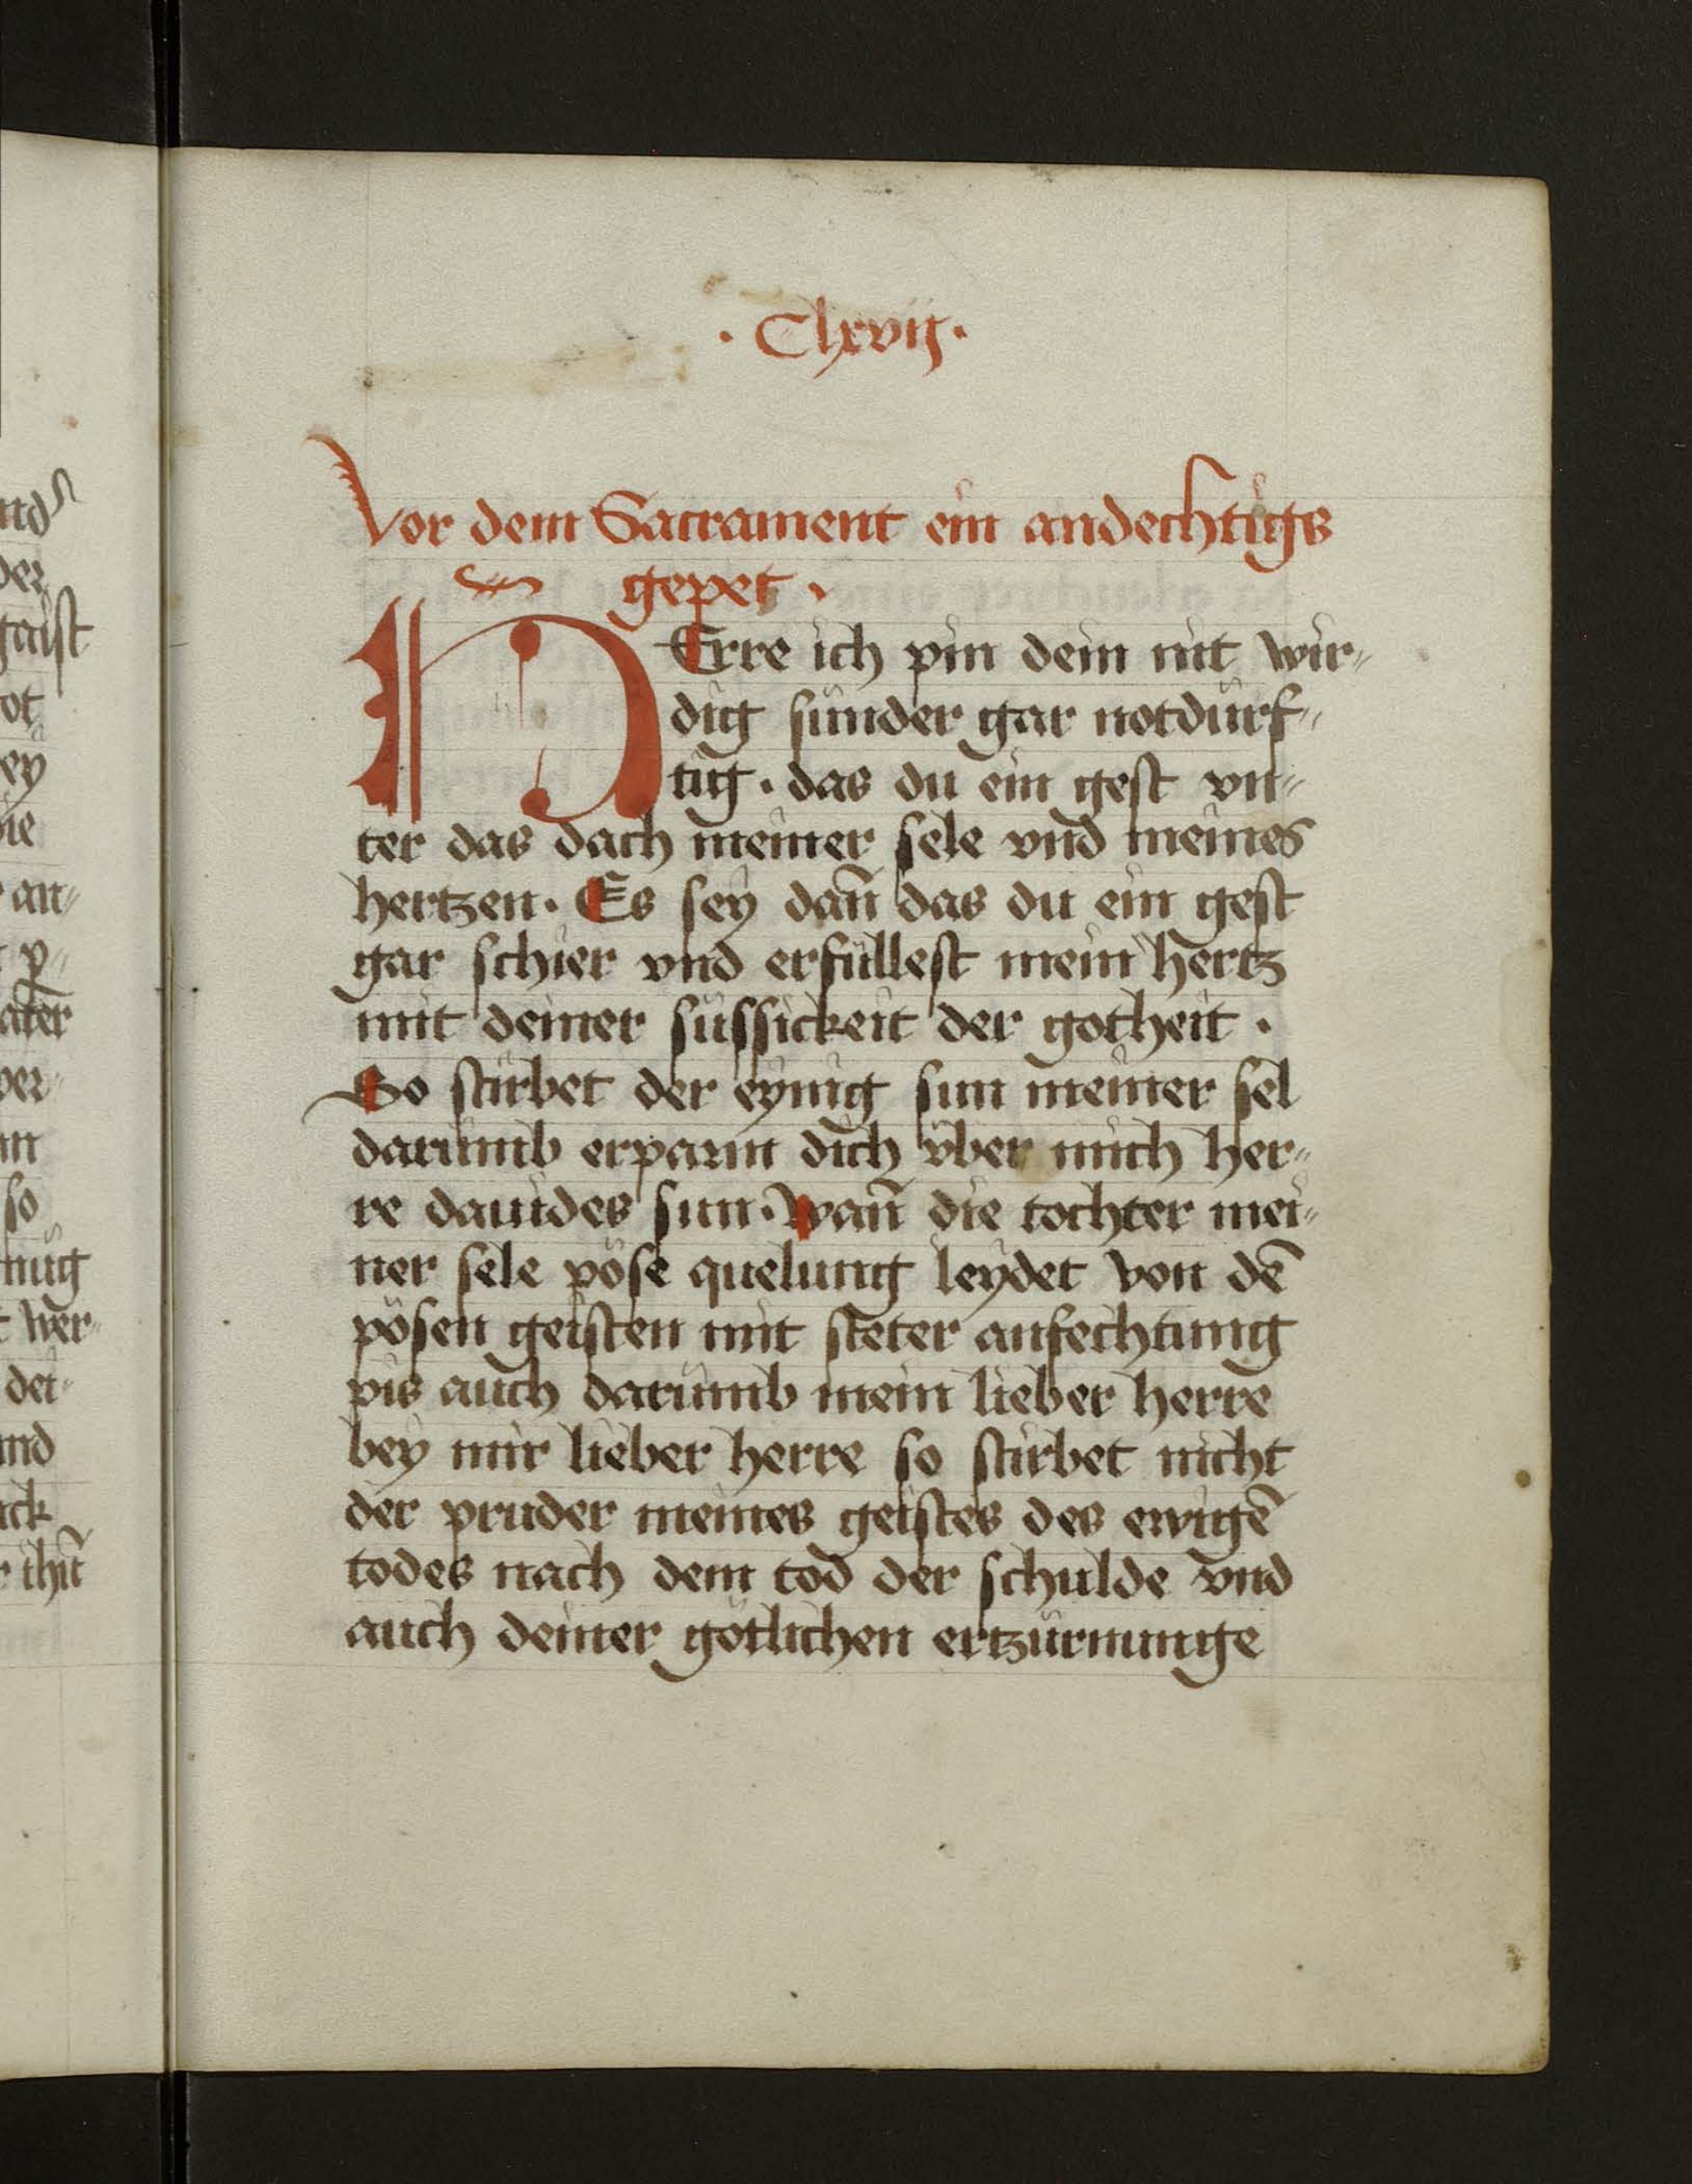 · Clxvij ·
Vor dem Sacrament ein andechtigs
gepet .
HErre ich pin dein nit wir-
dig sünder gar notdürf-
tig . das du ein gest vn-
ter das dach meiner sele vnd meines
hertzen . Es sey dan̄ das du ein gest
gar schier vnd erfüllest mein hertz
mit deiner süssickeit der gotheit .
So stirbet der eynig sun meiner sel
darumb erparm dich vber mich her-
re dauides sun . wan̄ die tochter mei-
ner sele pöse quelung leydet von dē
pösen geisten mit steter anfechtung
pis auch darumb mein lieber herre
bey mir lieber herre so stirbet nicht
der pruder meines geistes des ewigē
todes nach dem tod der schulde vnd
auch deiner götlichen ertzürnunge
gaist
ot
ey
an-
so
wer-
vnd